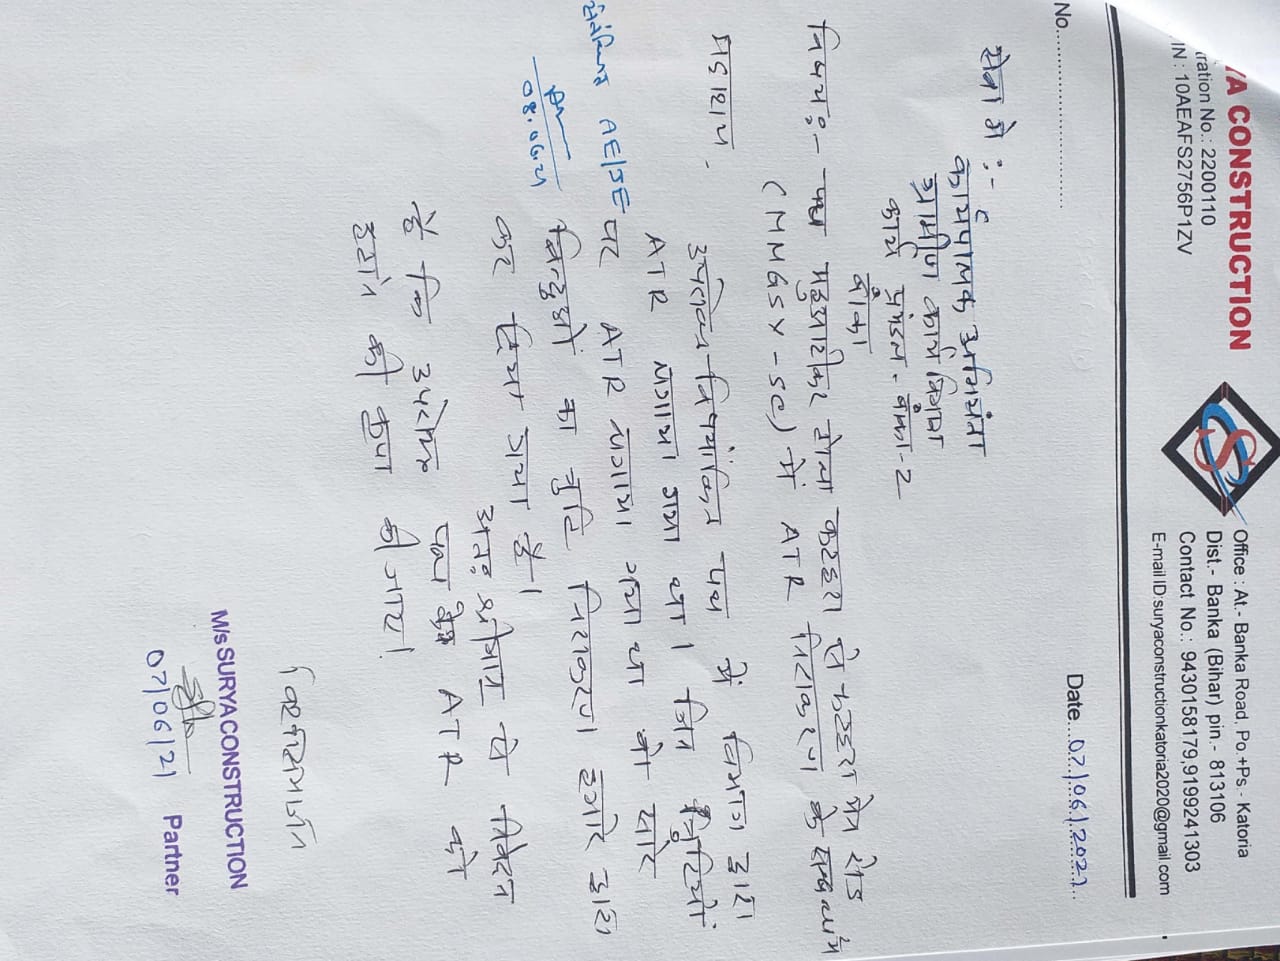 YA CONSTRUCTION
ration No.: 2200110
IN : 10AEAFS2756P1ZV
Office : At.- Banka Road, Po.+Ps.- Katoria
Dist.- Banka (Bihar) pin.- 813106
Contact No.: 9430158179,9199241303
E-mail ID:suryaconstructionkatoria2020@gmail.com
No.....................
Date...07/06/2021..
सेवा में :-
कार्यपालक अभियंता
ग्रामीण कार्य विभाग
कार्य प्रमंडल - बाँका-2
बाँका
विषय:- पथ कटहरा से कटहरा मेन रोड
(MMGSY-SC) में ATR निराकरण के सम्बन्ध में
महाशय,
उपरोक्त विषयांकित पथ में विभाग द्वारा
ATR मांगा गया था। जिन त्रुटियों
पर ATR मांगा गया था वो सारे
बिन्दुओं का त्रुटि निराकरण हमारे द्वारा
कर दिया गया है।
अतः श्रीमान से निवेदन
है कि उपरोक्त पथ ATR को
हटाने की कृपा की जाए।
संबंधित AE/JE
08.06.21
विश्वासभाजन
M/s SURYA CONSTRUCTION
07/06/21 Partner